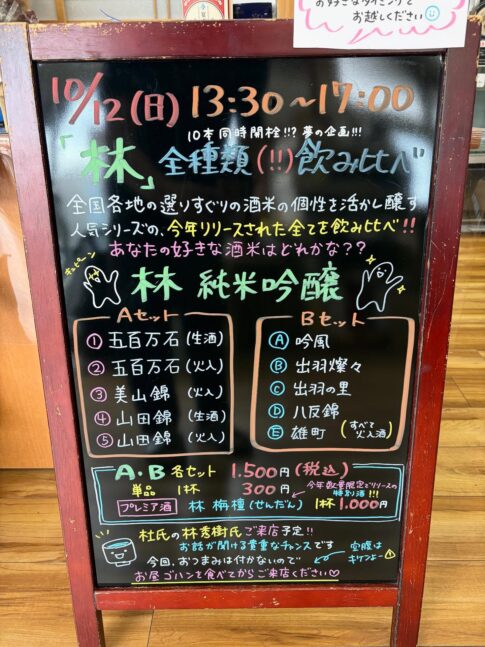 お好きなタイミングで
お越しください
10/12(日) 13:30~17:00
10本同時開栓!!? 夢の企画!!!
「林」全種類(!!)飲み比べ
全国各地の選りすぐりの酒米の個性を活かし醸す
人気シリーズの、今年リリースされた全てを飲み比べ!!
あなたの好きな酒米はどれかな??
林 純米吟醸
Aセット
① 五百万石 (生酒)
② 五百万石 (火入)
③ 美山錦 (火入)
④ 山田錦 (生酒)
⑤ 山田錦 (火入)
Bセット
Ⓐ 吟風
Ⓑ 出羽燦々
Ⓒ 出羽の里
Ⓓ 八反錦
Ⓔ 雄町 (すべて火入酒)
A・B 各セット 1.500円(税込)
単品 1杯 300円
今年数量限定でリリースの
特別酒!!!
プレミア酒 林 栴檀(せんだん) 1杯 1.000円
杜氏の林秀樹氏ご来店予定!!
お話が聞ける貴重なチャンスです
今回、おつまみは付かないので
お昼ゴハンを食べてからご来店ください♡
空腹は
キケンよー